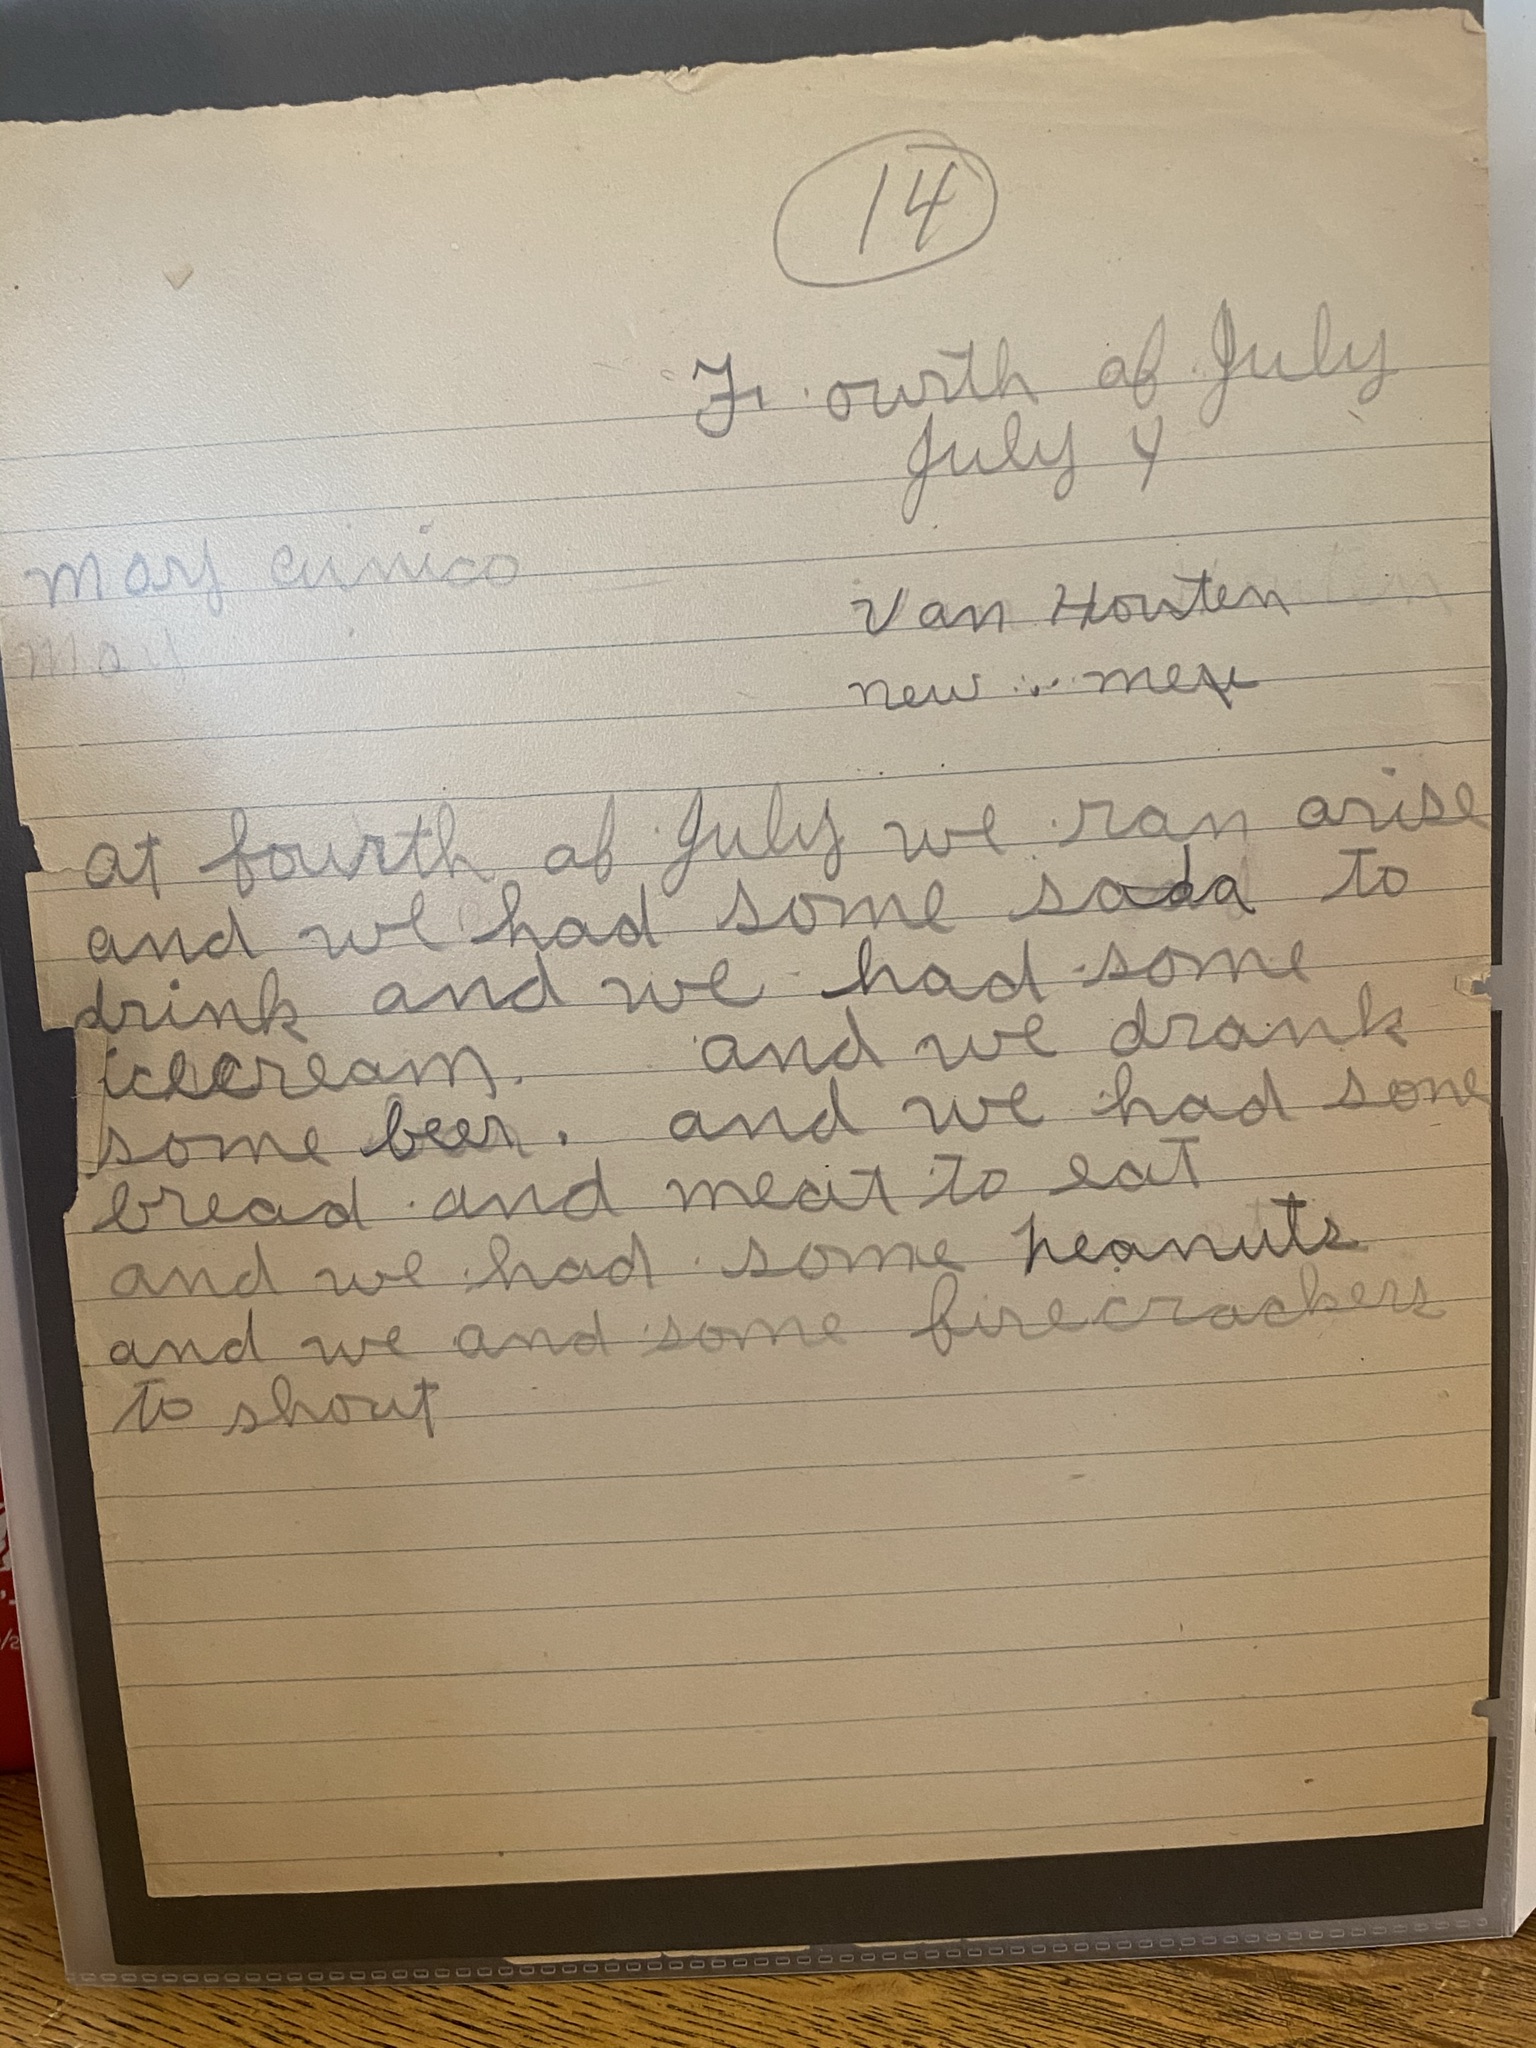 14
Fourth of July
July 4
mary cunico
Van Houten
may
new mex
at fourth of July we ran arise
and we had some soda to
drink and we had some
icecream. and we drank
some beer. and we had some
bread and meat to eat
and we had some peanuts
and we and some firecrackers
to shout